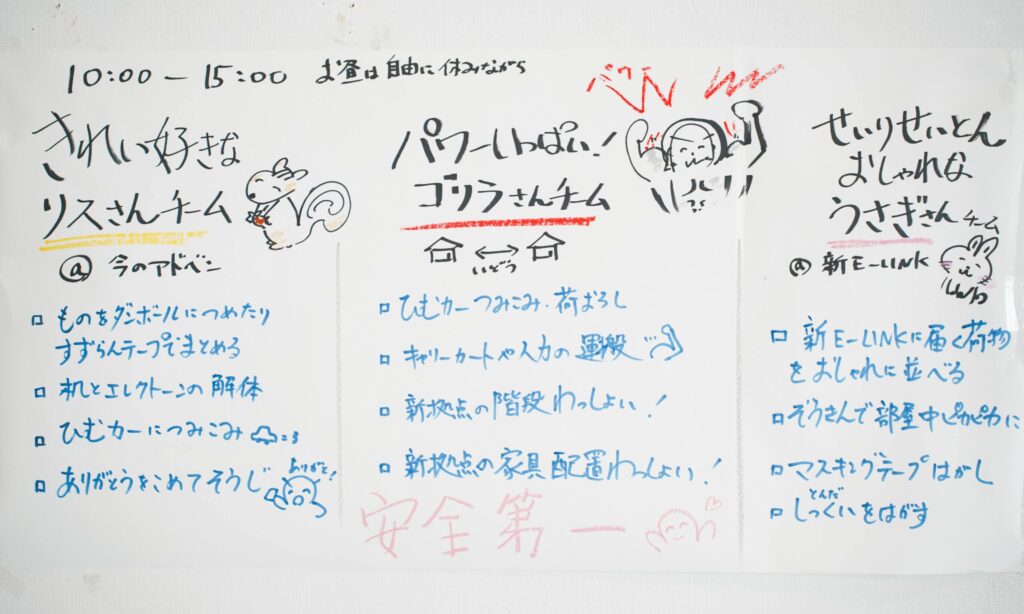 10:00 — 15:00 お昼は自由に休みながら
きれい好きな
リスさんチーム
@ 今のアドベン
ものをダンボールにつめたり
すずらんテープでまとめる
机とエレクトーンの解体
ひむカーにつみこみ
ありがとうをこめてそうじ
ありがと!
パワーいっぱい!
ゴリラさんチーム
いどう
ひむカーつみこみ・荷おろし
キャリーカートや人力の運搬
新拠点の階段わっしょい!
新拠点の家具配置わっしょい!
安全第一
せいりせいとん
おしゃれな
うさぎさんチーム
@ 新E-LINK
新E-LINKに届く荷物
をおしゃれに並べる
ぞうさんで部屋中ピカピカに
マスキングテープはがし
とんだ
しっくいをはがす